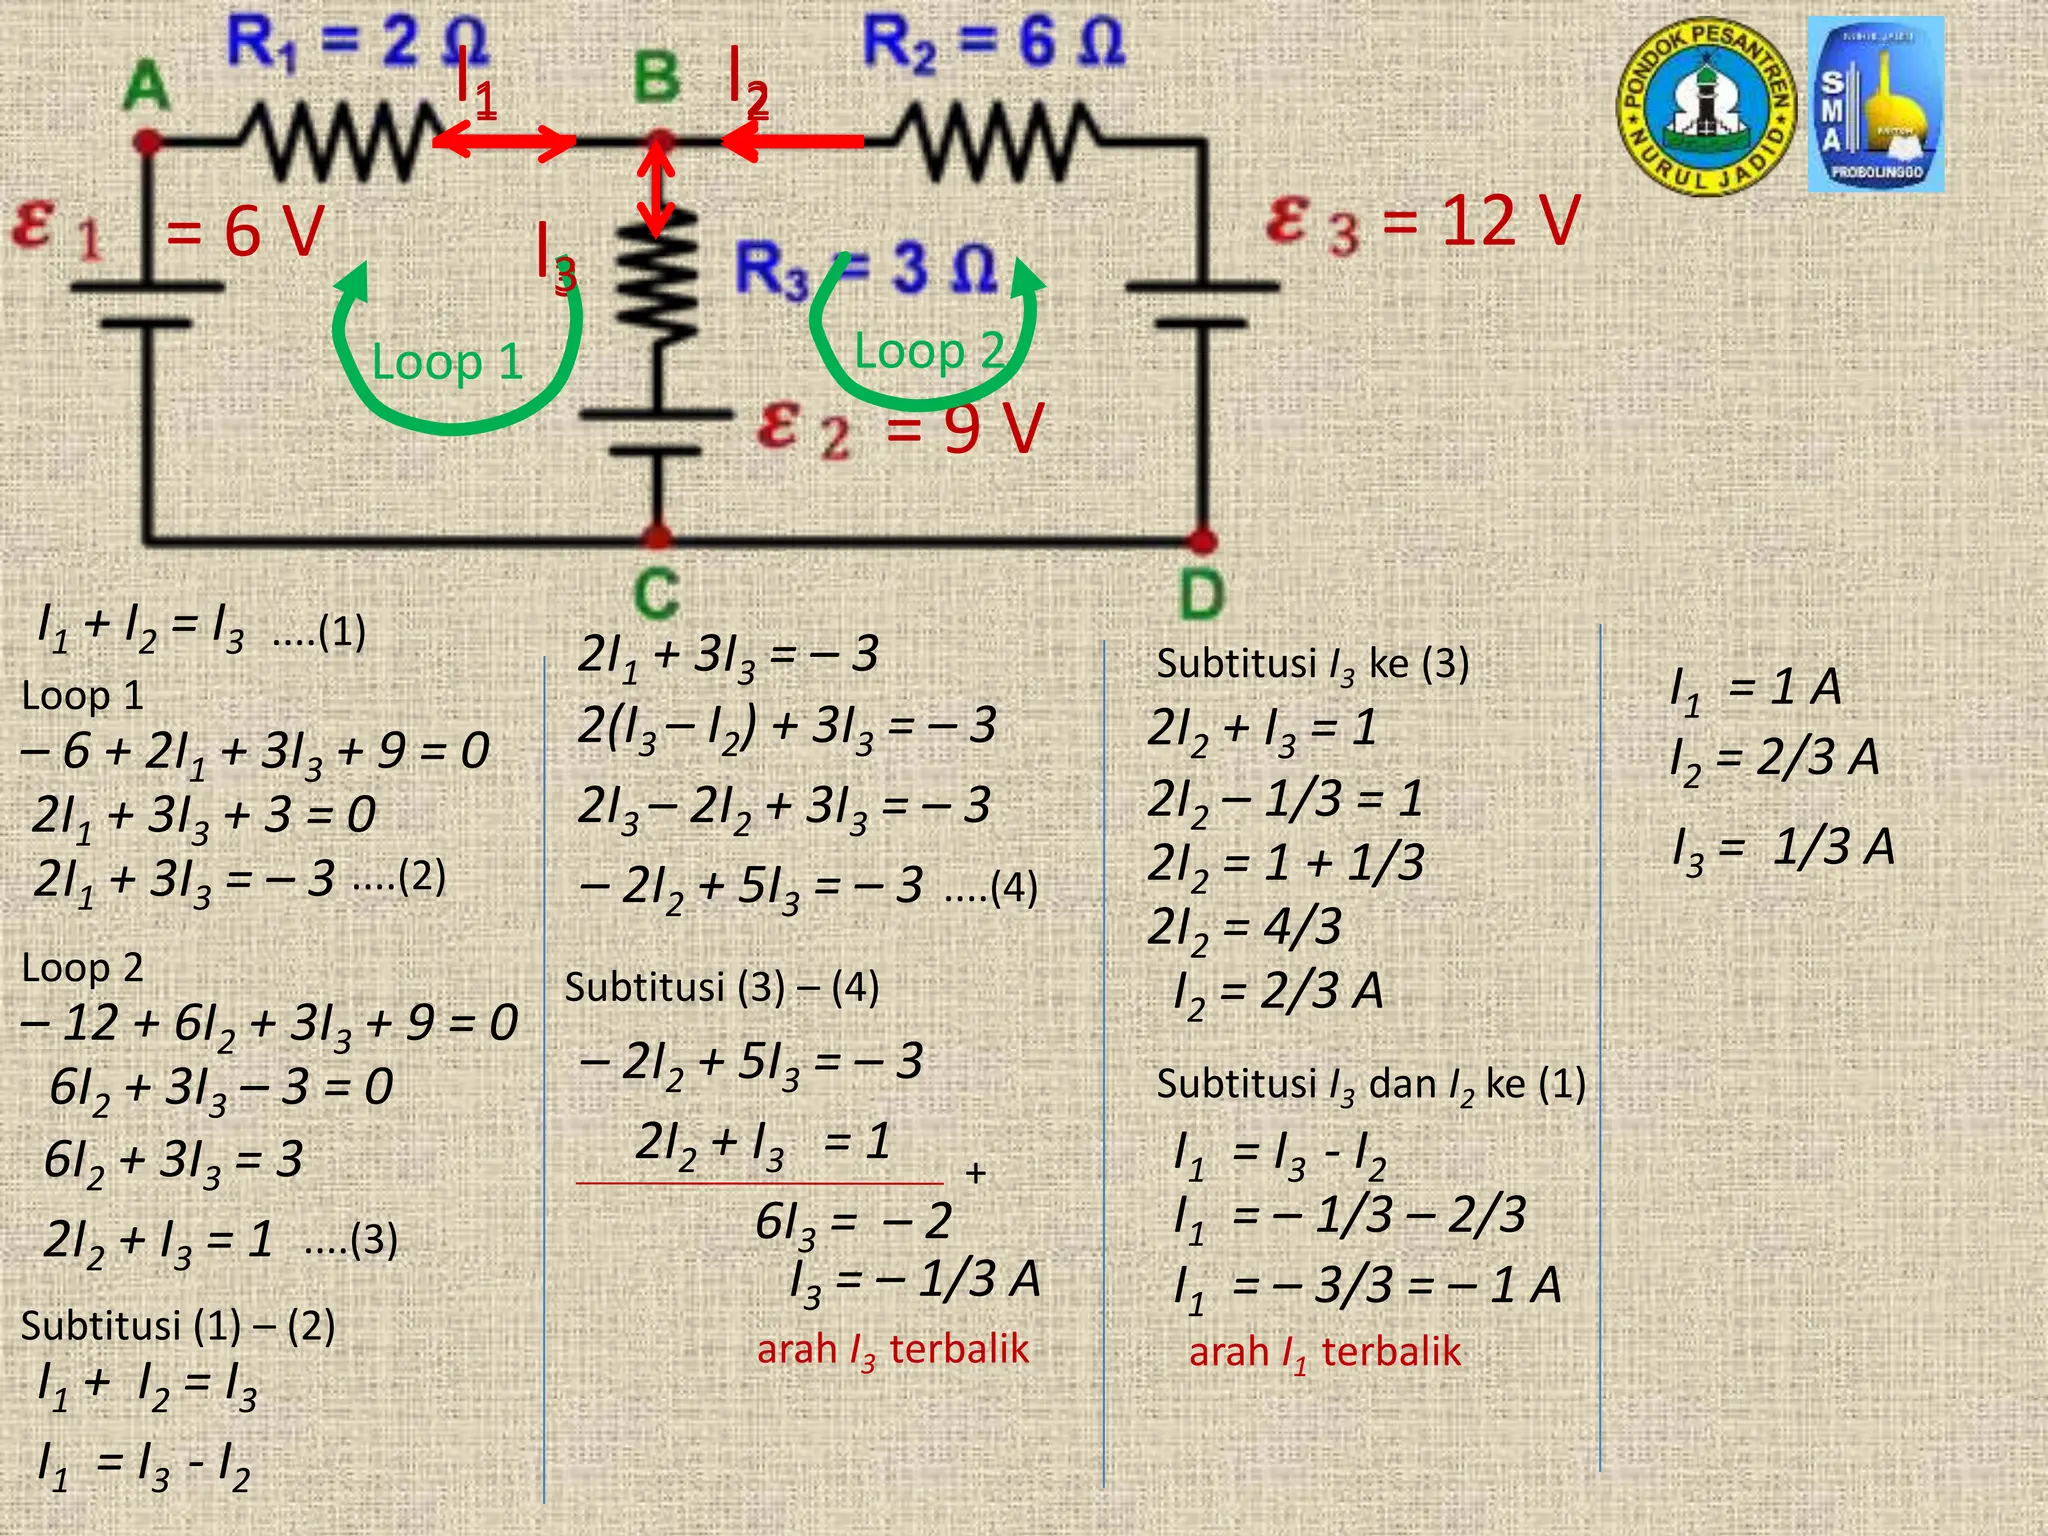 R1 = 2 Ω
R2 = 6 Ω
A
I1
B
I2
ε 1 = 6 V
I3
R3 = 3 Ω
ε 3 = 12 V
Loop 1
Loop 2
ε 2 = 9 V
C
D
PONDOK PESANTREN
NURUL JADID
SMA
PROBOLINGGO
I1 + I2 = I3 ....(1)
Loop 1
– 6 + 2I1 + 3I3 + 9 = 0
2I1 + 3I3 + 3 = 0
2I1 + 3I3 = – 3 ....(2)
Loop 2
– 12 + 6I2 + 3I3 + 9 = 0
6I2 + 3I3 – 3 = 0
6I2 + 3I3 = 3
2I2 + I3 = 1 ....(3)
Subtitusi (1) – (2)
I1 + I2 = I3
I1 = I3 - I2
2I1 + 3I3 = – 3
2(I3 – I2) + 3I3 = – 3
2I3 – 2I2 + 3I3 = – 3
– 2I2 + 5I3 = – 3 ....(4)
Subtitusi (3) – (4)
– 2I2 + 5I3 = – 3
2I2 + I3 = 1
+
6I3 = – 2
I3 = – 1/3 A
arah I3 terbalik
Subtitusi I3 ke (3)
2I2 + I3 = 1
2I2 – 1/3 = 1
2I2 = 1 + 1/3
2I2 = 4/3
I2 = 2/3 A
Subtitusi I3 dan I2 ke (1)
I1 = I3 - I2
I1 = – 1/3 – 2/3
I1 = – 3/3 = – 1 A
arah I1 terbalik
I1 = 1 A
I2 = 2/3 A
I3 = 1/3 A